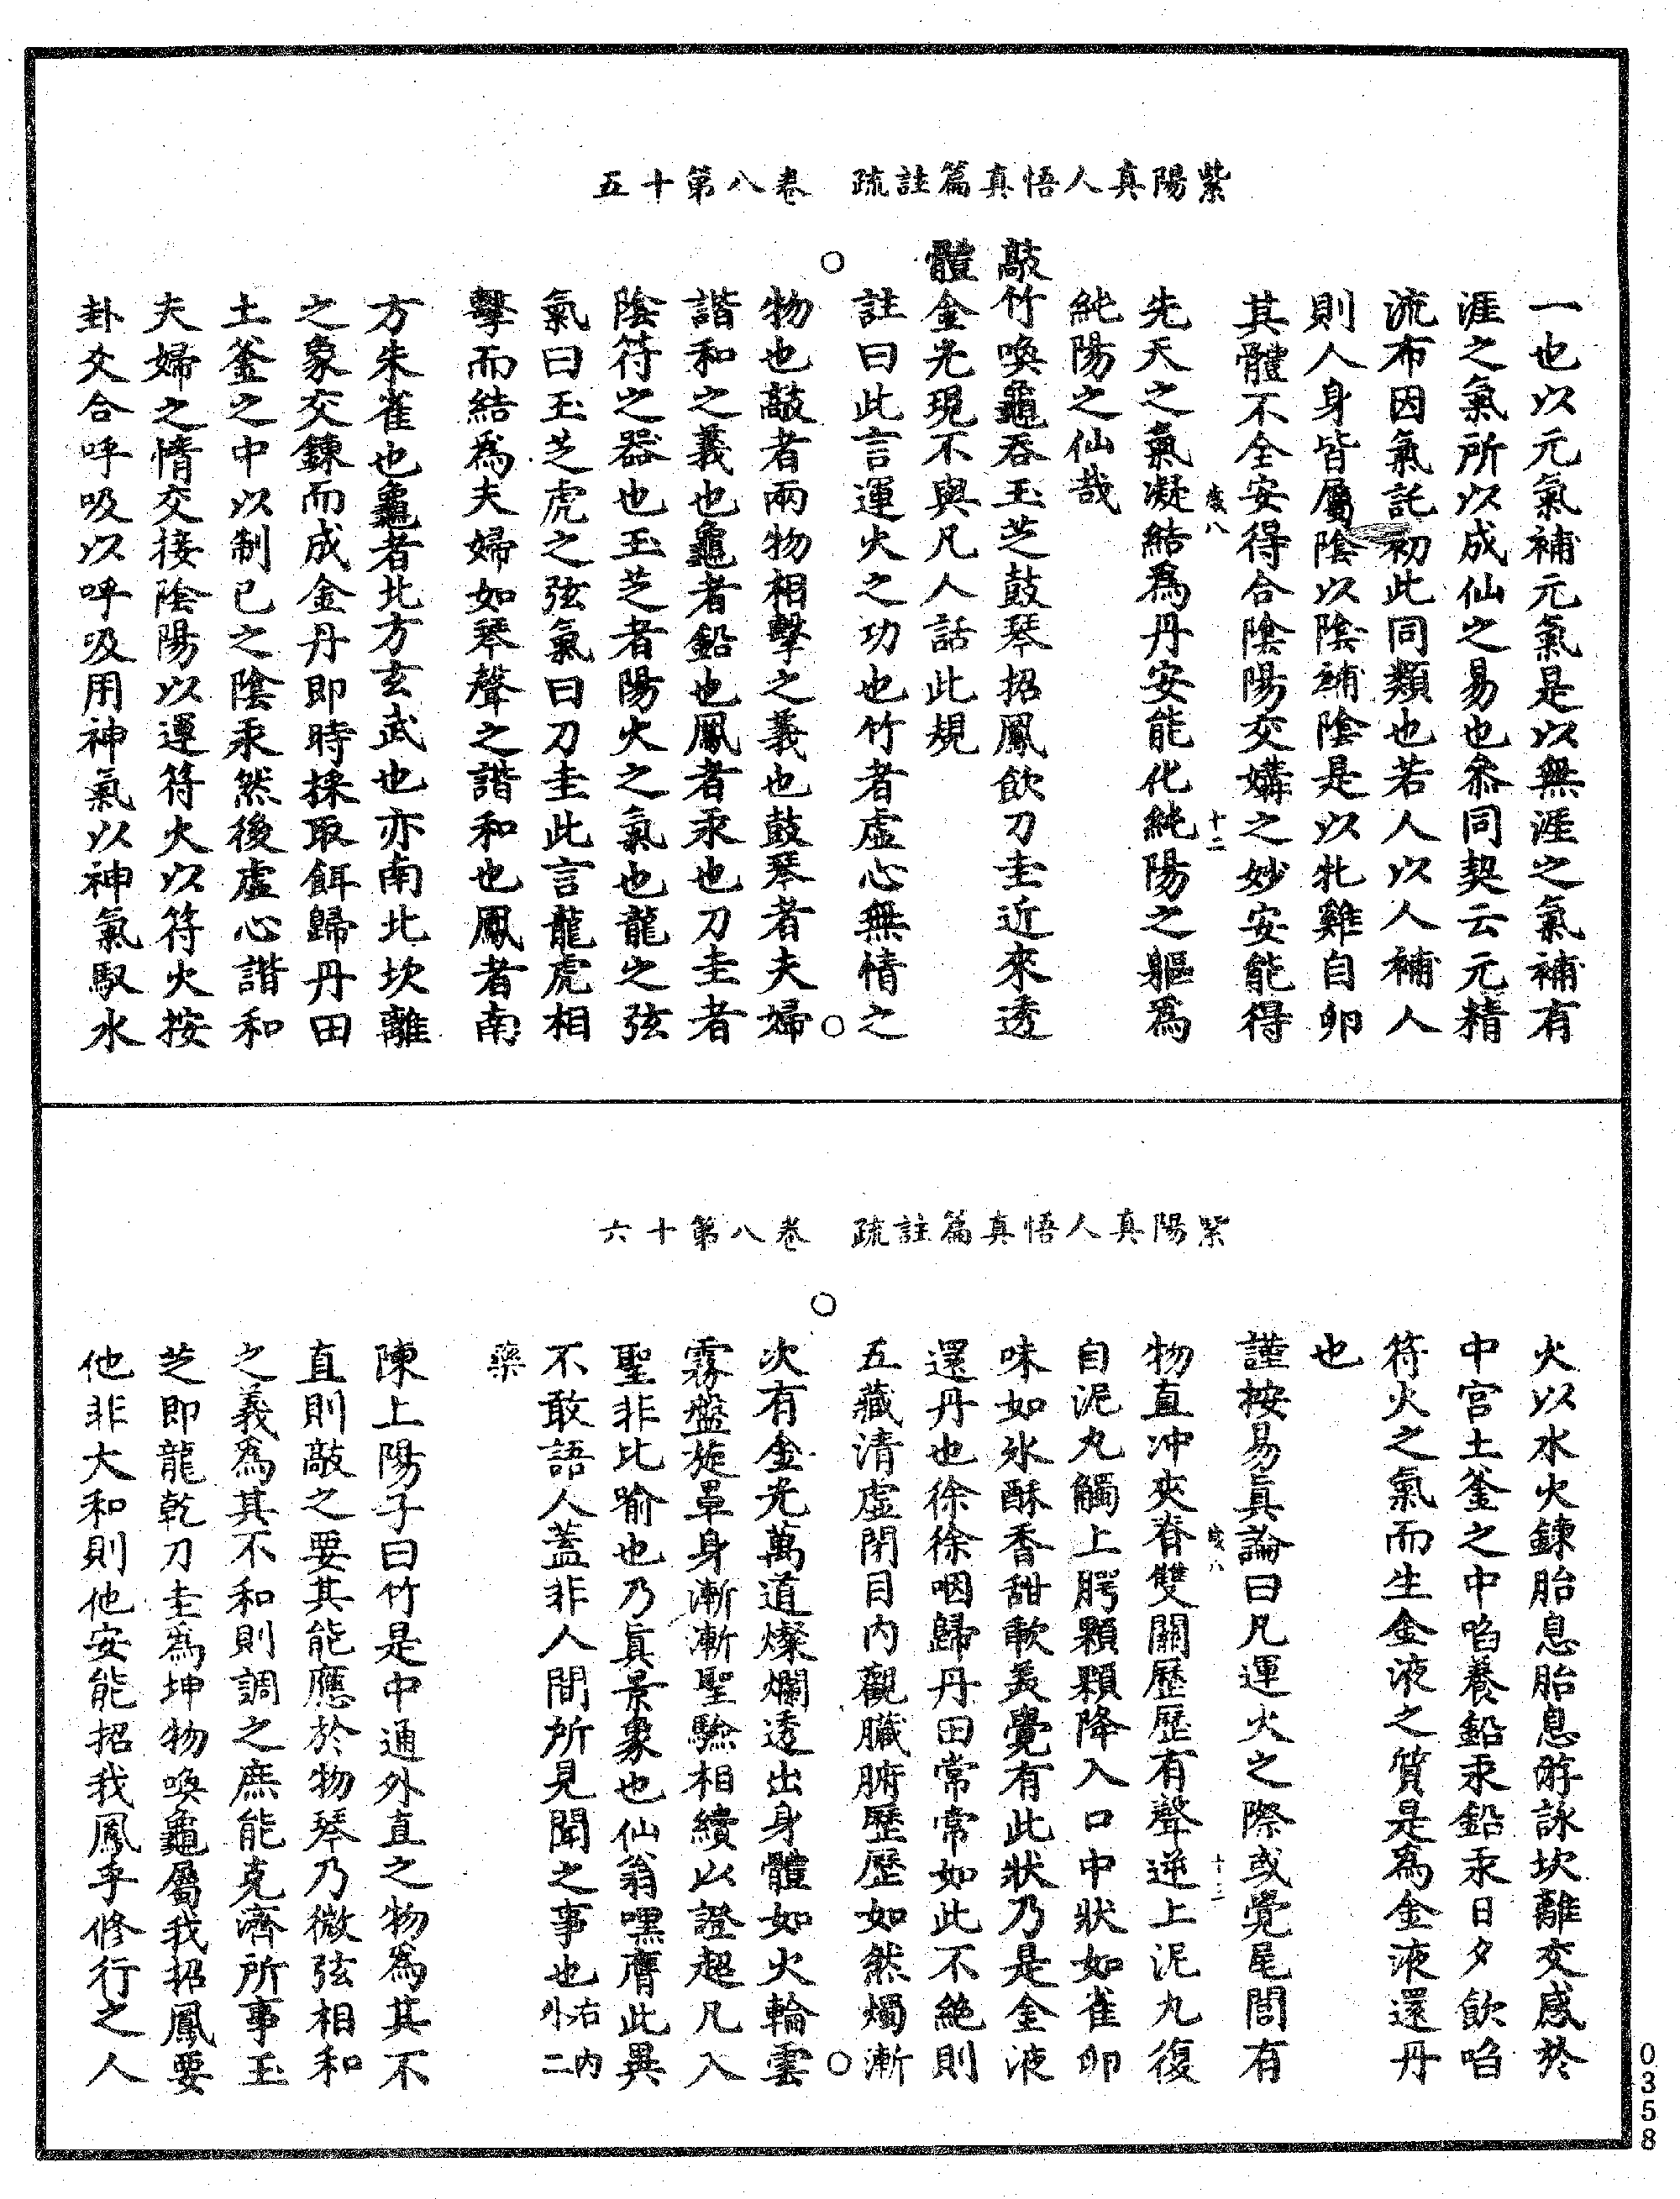 紫陽真人悟真篇註疏　卷八第十五
一也以元氣補元氣是以無涯之氣補有
涯之氣所以成仙之易也叅同契云元精
流布因氣託初此同類也若人以人補人
則人身皆屬陰以陰補陰是以牝雞自卵
其體不全安得合陰陽交媾之妙安能得
歲八　十二
先天之氣凝結爲丹安能化純陽之軀爲
純陽之仙哉
敲竹喚龜吞玉芝鼓琴招鳳飲刀圭近來透
體金光現不與凡人話此規
註曰此言運火之功也竹者虛心無情之
物也敲者兩物相擊之義也鼓琴者夫婦
諧和之義也龜者鉛也鳳者汞也刀圭者
陰符之器也玉芝者陽火之氣也龍之弦
氣曰玉芝虎之弦氣曰刀圭此言龍虎相
擊而結爲夫婦如琴聲之諧和也鳳者南
方朱雀也龜者北方玄武也亦南北坎離
之象交鍊而成金丹即時採取餌歸丹田
土釜之中以制己之陰汞然後虛心諧和
夫婦之情交接陰陽以運符火以符火按
卦爻合呼吸以呼吸用神氣以神氣馭水
紫陽真人悟真篇註疏　卷八第十六
火以水火鍊胎息胎息游詠坎離交感於
中宮土釜之中㗖養鉛汞鉛汞日夕飲㗖
符火之氣而生金液之質是爲金液還丹
也
謹按易眞論曰凡運火之際或覺尾閭有
歲八　十二
物直冲夾脊雙關歷歷有聲逆上泥丸復
自泥丸觸上腭顆顆降入口中狀如雀卵
味如氷酥香甜軟美覺有此狀乃是金液
還丹也徐徐咽歸丹田常常如此不絕則
五藏清虛閉目內觀臟腑歷歷如然燭漸
次有金光萬道燦爛透出身體如火輪雲
霧盤旋罩身漸漸聖驗相續以證超凡入
聖非比喻也乃眞景象也仙翁嘿膺此異
不敢語人蓋非人間所見聞之事也右內外二
藥
陳上陽子曰竹是中通外直之物爲其不
直則敲之要其能應於物琴乃微弦相和
之義爲其不和則調之庶能克濟所事玉
芝即龍乾刀圭爲坤物喚龜屬我招鳳要
他非大和則他安能招我鳳乎修行之人
0358